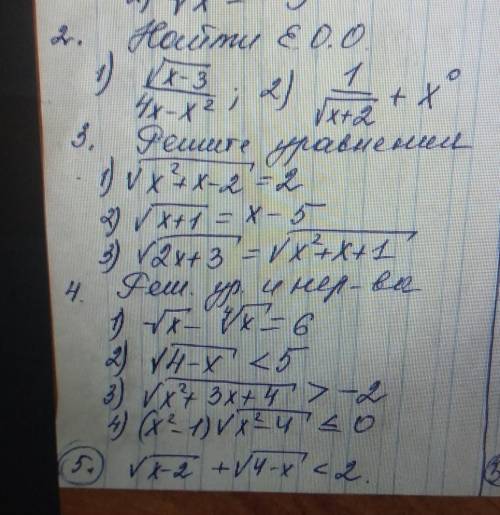 2. Найти Е О.О.
1) √(x-3) / (4x-x²) ; 2) 1/√(x+2) + x⁰
3. Решите уравнения
1) √(x²+x-2) = 2
2) √(x+1) = x-5
3) √(2x+3) = √(x²+x+1)
4. Реш. ур. и нер-ва
1) √x - ∜x = 6
2) √(4-x) < 5
3) √(x²+3x+4) > -2
4) (x²-1)√(x²-4) ≤ 0
5. √(x-2) + √(4-x) < 2.